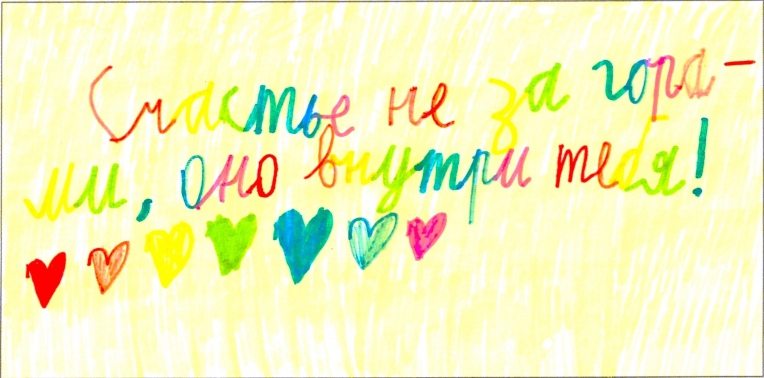 Счастье не за гора-
ми, оно внутри тебя!